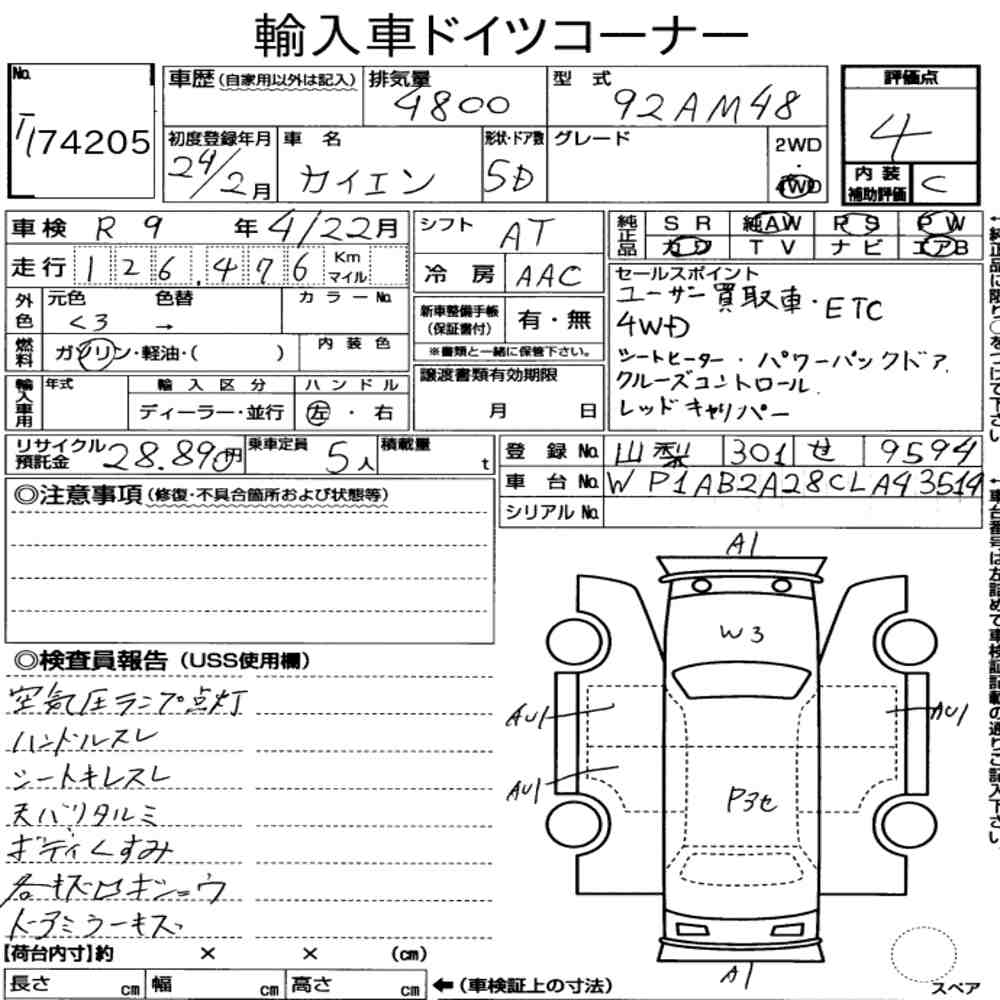 輸入車ドイツコーナー
No.
74205
車歴(自家用以外は記入) 排気量 4800 型式 92AM48
評価点 4
初度登録年月 24/2月 車名 カイエン 形状・ドア数 5D グレード 2WD・4WD
内装補助評価 C
車検 R 9年 4/22月
シフト AT
純正品 SR 純AW PS PW
TV ナビ エアB
走行 126,476 Km マイル
冷房 AAC
セールスポイント
ユーザー買取車・ETC
4WD
シートヒーター・パワーバックドア
クルーズコントロール
レッドキャリパー
外色 元色 色替 カラーNo.
くろ →
新車整備手帳(保証書付) 有・無
※書類と一緒に保管下さい。
燃料 ガソリン・軽油・( ) 内装色
譲渡書類有効期限
月 日
輸入車用 年式 輸入区分 ハンドル
ディーラー・並行 左・右
リサイクル預託金 28.890円 乗車定員 5人 積載量 t
登録No. 山梨 301 せ 9594
車台No. WP1AB2A28CLA93519
シリアルNo.
◎注意事項(修復・不具合箇所および状態等)
A1
W3
AU1
AU1
AU1
P3せ
A1
スペア
◎検査員報告(USS使用欄)
空気圧ランプ点灯
ハンドルスレ
シートキレスレ
天バリタルミ
ボディくすみ
トアミラーキズ
【荷台内寸】約 × × (cm)
長さ cm 幅 cm 高さ cm ←(車検証上の寸法)
↑純正品に限り○をつけて下さい。
↑車台番号は左詰めで車検証記載の通りご記入下さい。